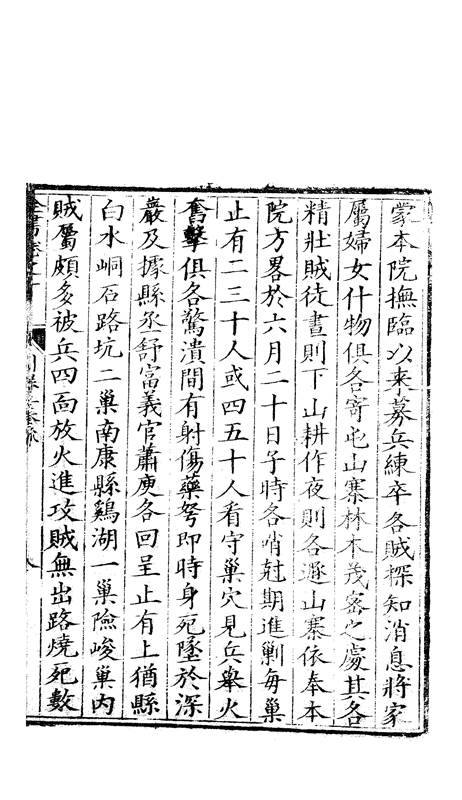 蒙本院撫臨以来募兵練卒各賊探知消息將家
屬婦女什物俱各寄屯山寨林木茂密之處其各
精壯賊徒晝則下山耕作夜則各遯山寨依奉本
院方畧於六月二十日子時各哨尅期進剿每巢
止有二三十人或四五十人看守巢穴見兵舉火
奮擊俱各驚潰間有射傷藥弩即時身死墜於深
嚴及據縣丞舒富義官蕭庾各回呈止有上猶縣
白水峒石路坑二巢南康縣鷄湖一巢險峻巢内
賊屬頗多被兵四面放火進攻賊無出路燒死數